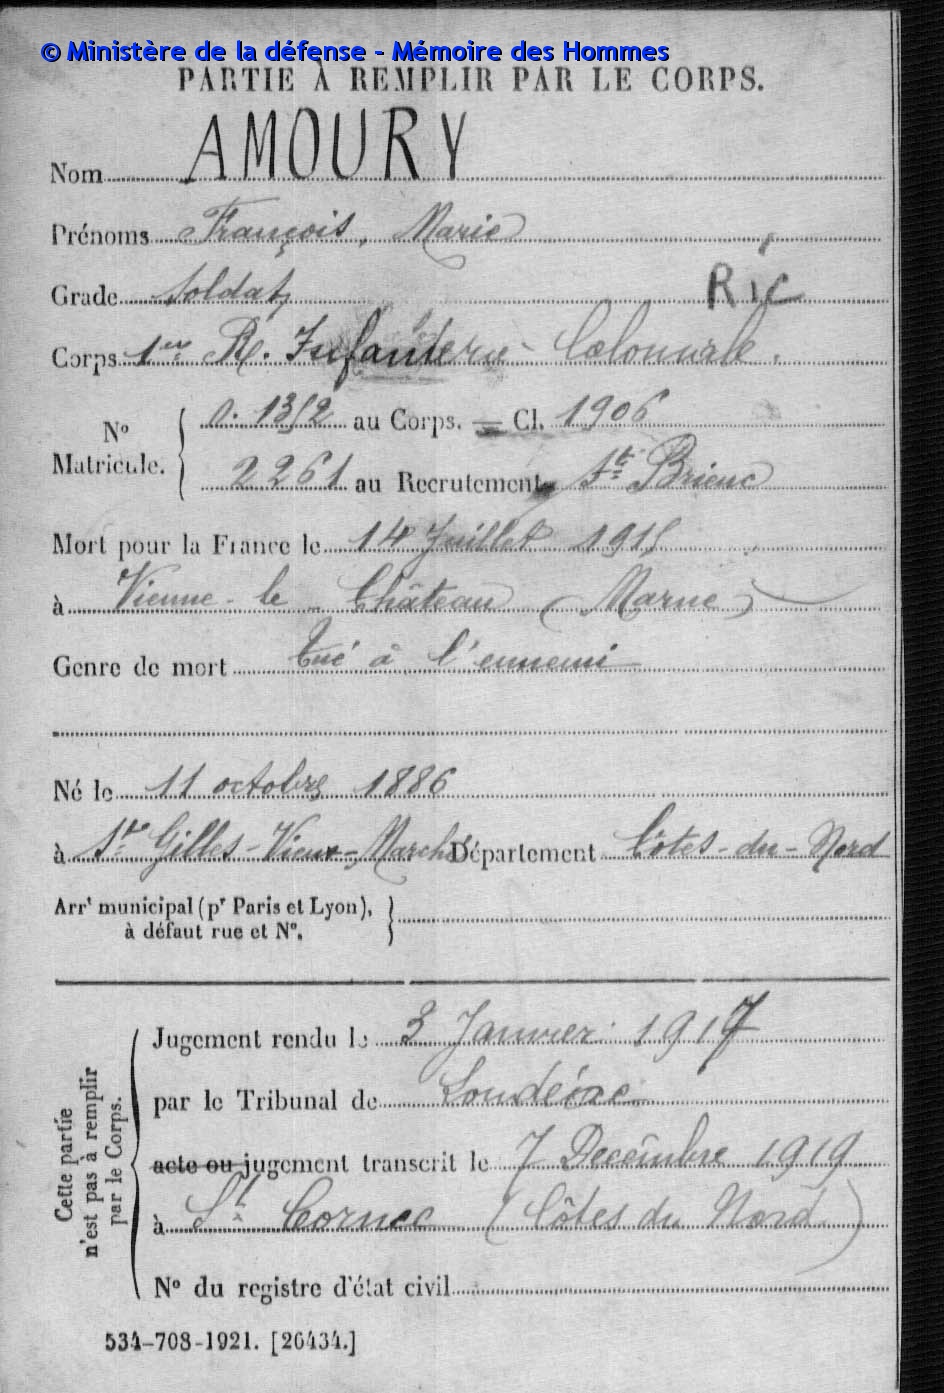 © Ministère de la défense - Mémoire des Hommes
PARTIE À REMPLIR PAR LE CORPS.
Nom AMOURY
Prénoms François, Marie
Grade Soldat
Ric
Corps 1er R. Infanterie Coloniale.
No Matricule. 0.1352 au Corps. = Cl. 1906
2261 au Recrutement St Brieuc
Mort pour la France le 14 Juillet 1915
à Vienne-le-Château (Marne)
Genre de mort tué à l'ennemi
Né le 11 octobre 1886
à St Gilles-Vieux-Marché Département Côtes-du-Nord
Arrt municipal (pr Paris et Lyon),
à défaut rue et No.
Cette partie
n'est pas à remplir
par le Corps.
Jugement rendu le 3 Janvier 1917
par le Tribunal de Loudéac
acte ou jugement transcrit le 7 Décembre 1919
à St (Côtes du Nord)
No du registre d'état civil
534-708-1921. [26434.]